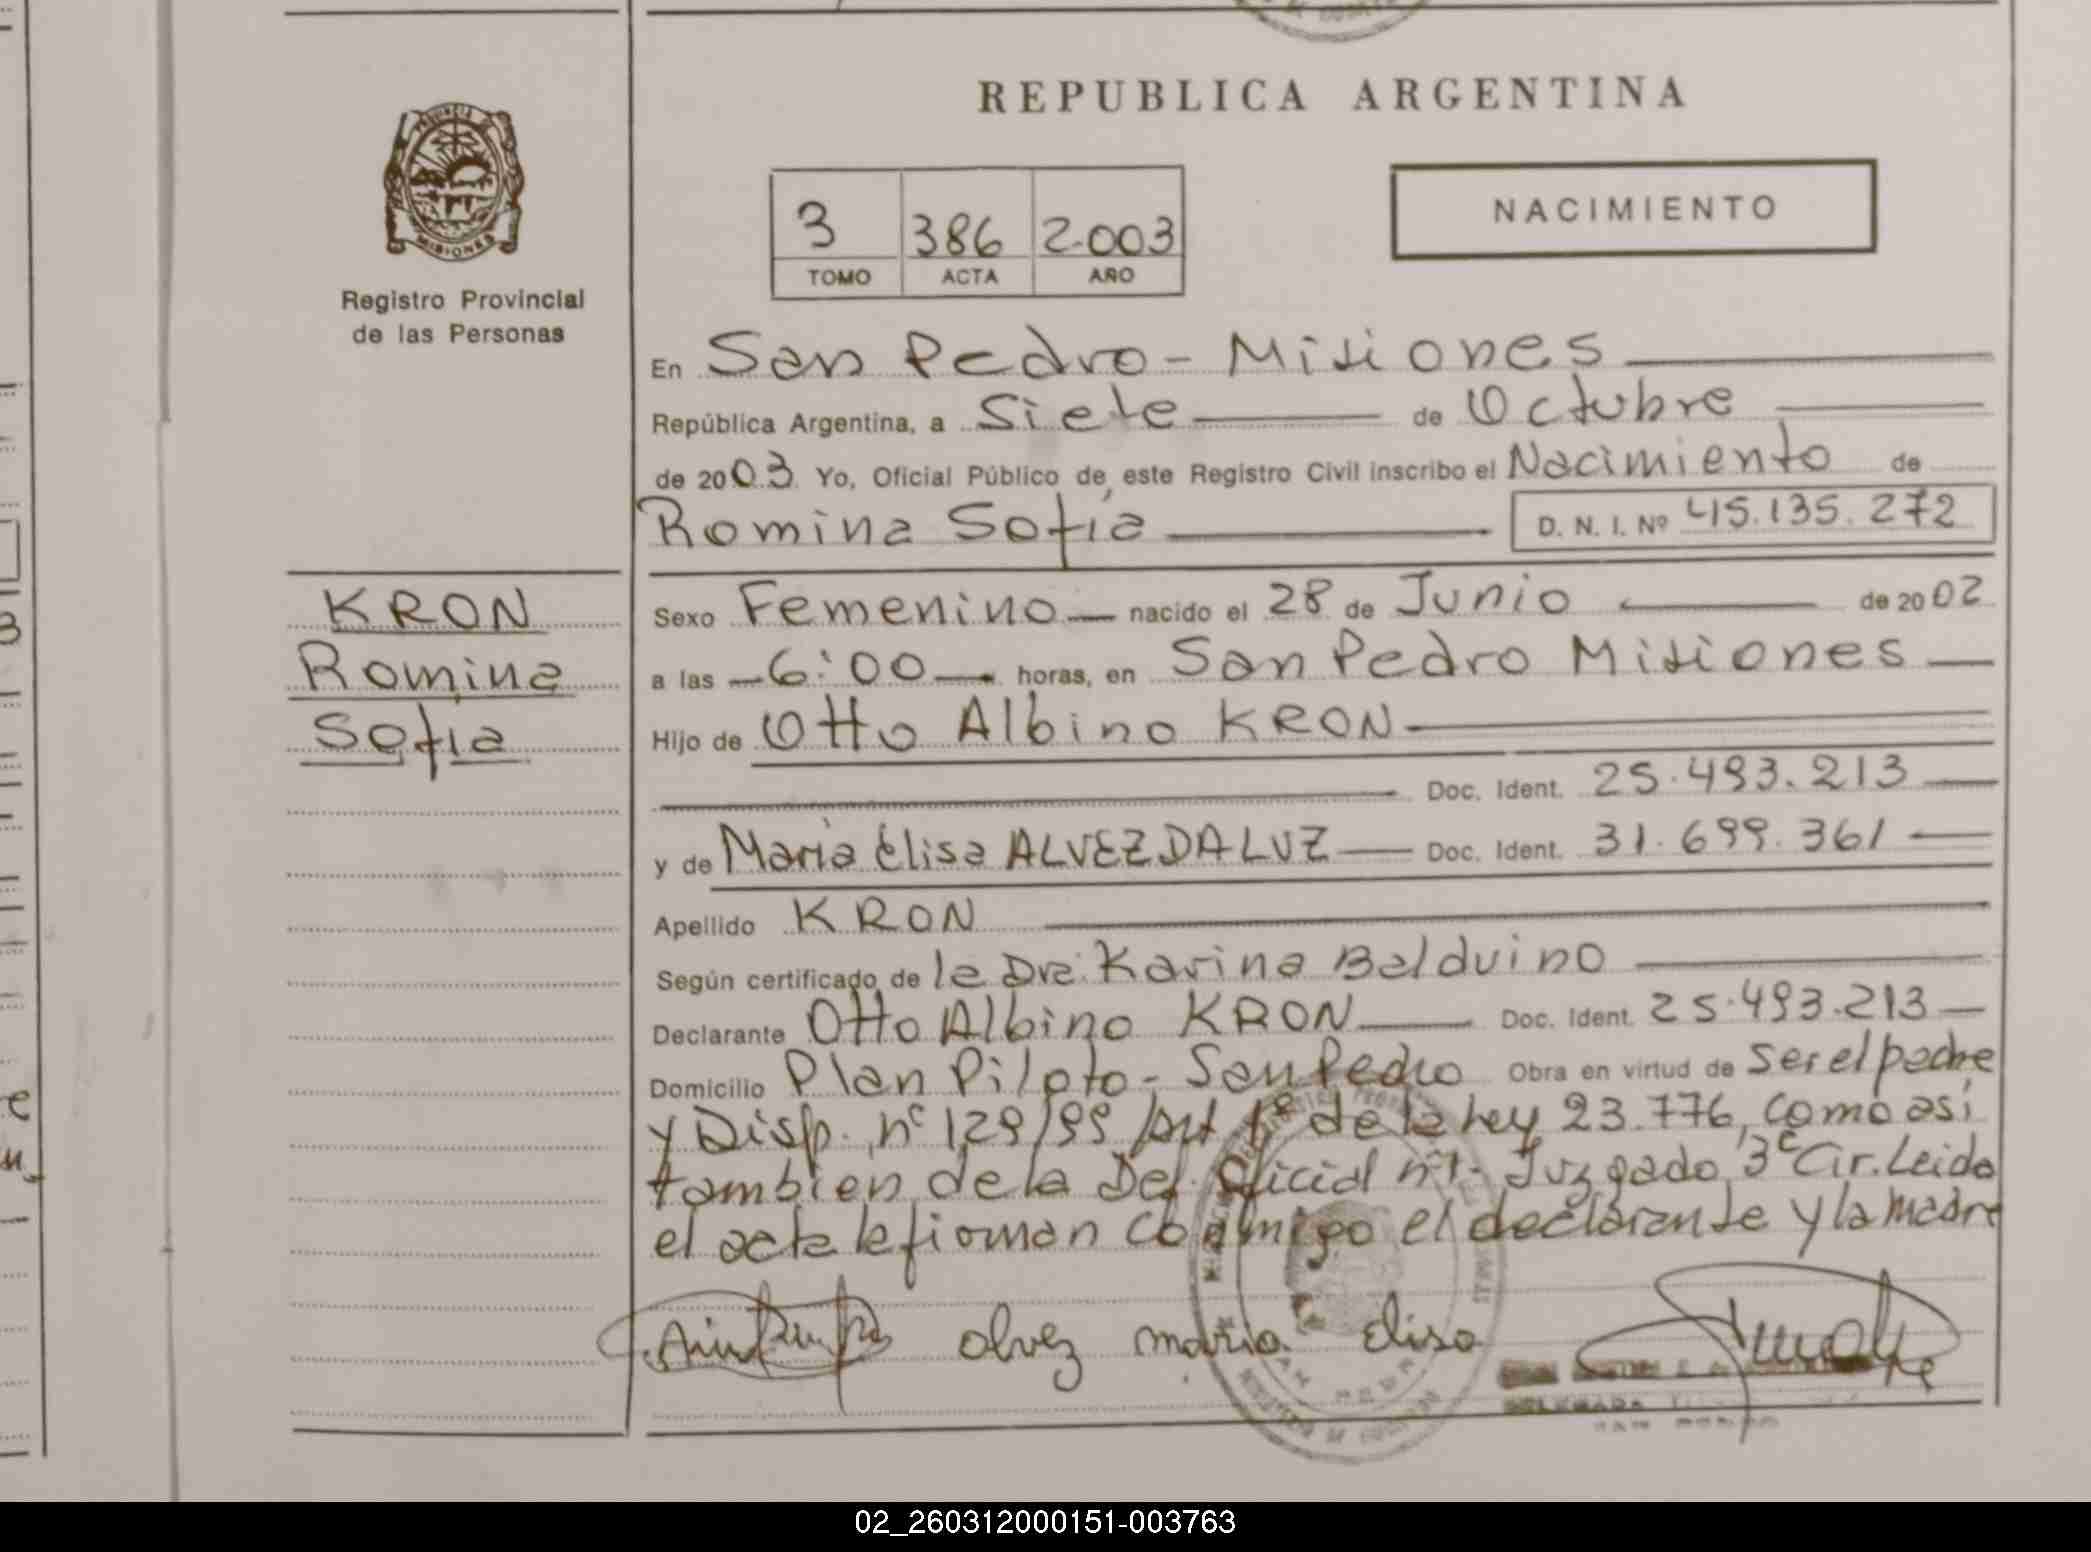 REPUBLICA ARGENTINA
PROVINCIA DE
MISIONES
Registro Provincial
de las Personas
3 386 2.003
TOMO ACTA AÑO
NACIMIENTO
En San Pedro - Misiones
República Argentina, a Siete de Octubre
de 2003 Yo, Oficial Público de este Registro Civil inscribo el Nacimiento de
Romina Sofía D. N. I. Nº 45.135.272
KRON
Romina
Sofia
Sexo Femenino nacido el 28 de Junio de 2002
a las 6:00 horas, en San Pedro Misiones
Hijo de Otto Albino KRON
Doc. Ident. 25.493.213
y de Maria Elisa ALVEZ DA LUZ Doc. Ident. 31.699.361
Apellido KRON
Según certificado de la Dra. Karina Balduino
Declarante Otto Albino KRON Doc. Ident. 25.493.213
Domicilio Plan Piloto - San Pedro Obra en virtud de Ser el padre
y Disp. nº 129/99 Art 1º de la Ley 23.776, como así
tambien de la Def. Oficial nº 1 - Juzgado 3º Cir. Leida
el acta la firman conmigo el declarante y la madre
alvez maria elisa
SAN PEDRO
02_260312000151-003763